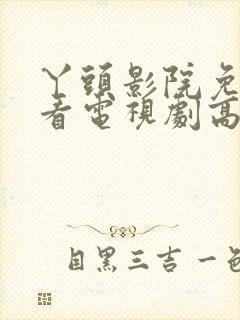 丫頭影院免
看電視劇高
目黑三吉一色